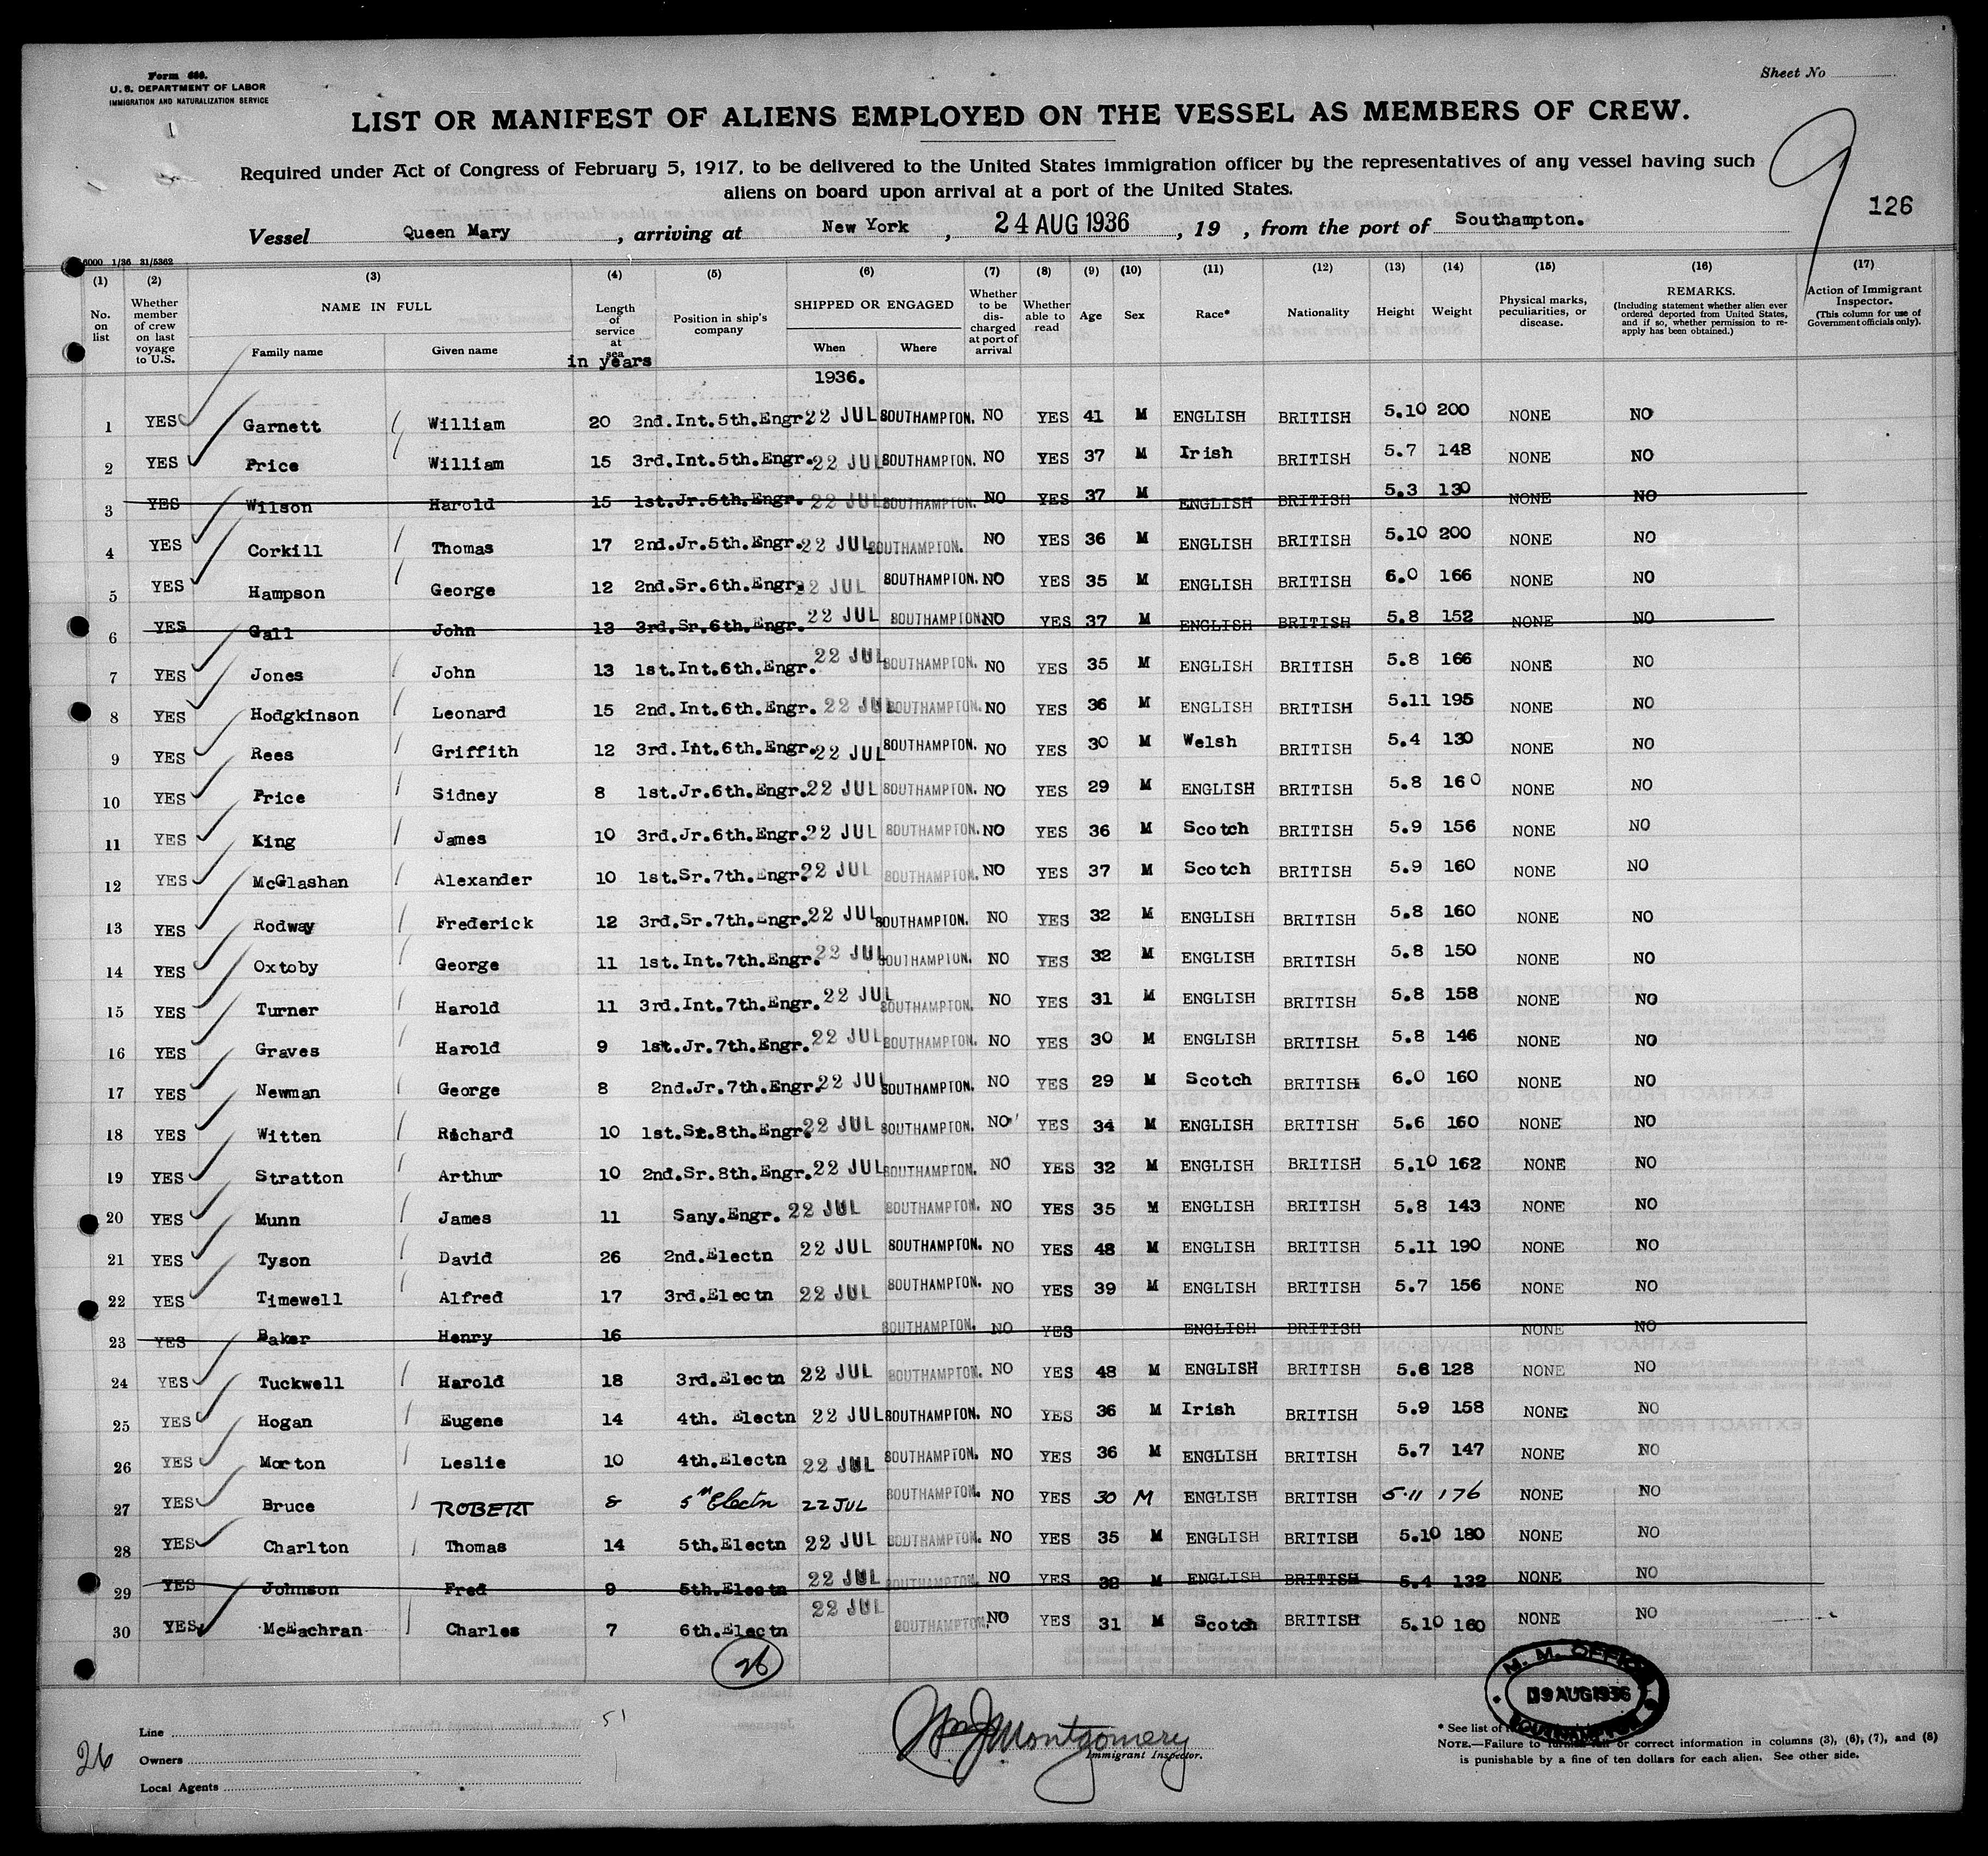 Form 680.
U. S. DEPARTMENT OF LABOR
IMMIGRATION AND NATURALIZATION SERVICE
Sheet No
LIST OR MANIFEST OF ALIENS EMPLOYED ON THE VESSEL AS MEMBERS OF CREW.
Required under Act of Congress of February 5, 1917, to be delivered to the United States immigration officer by the representatives of any vessel having such
aliens on board upon arrival at a port of the United States.
9
126
Vessel Queen Mary, arriving at New York, 24 AUG 1936, 19 , from the port of Southampton.
6000 1/36 31/5362
(1) (2) (3) (4) (5) (6) (7) (8) (9) (10) (11) (12) (13) (14) (15) (16) (17)
No. on list
Whether member of crew on last voyage to U.S.
NAME IN FULL
Family name
Given name
Length of service at sea
in years
Position in ship's company
SHIPPED OR ENGAGED
When
Where
Whether to be discharged at port of arrival
Whether able to read
Age
Sex
Race*
Nationality
Height
Weight
Physical marks, peculiarities, or disease.
REMARKS.
(Including statement whether alien ever ordered deported from United States, and if so, whether permission to reapply has been obtained.)
Action of Immigrant Inspector.
(This column for use of Government officials only).
1936.
1 YES Garnett William 20 2nd.Int.5th.Engr. 22 JUL SOUTHAMPTON. NO YES 41 M ENGLISH BRITISH 5.10 200 NONE NO
2 YES Price William 15 3rd.Int.5th.Engr. 22 JUL SOUTHAMPTON. NO YES 37 M Irish BRITISH 5.7 148 NONE NO
3 YES Wilson Harold 15 1st.Jr.5th.Engr. 22 JUL SOUTHAMPTON. NO YES 37 M ENGLISH BRITISH 5.3 130 NONE NO
4 YES Corkill Thomas 17 2nd.Jr.5th.Engr. 22 JUL SOUTHAMPTON. NO YES 36 M ENGLISH BRITISH 5.10 200 NONE NO
5 YES Hampson George 12 2nd.Sr.6th.Engr. 22 JUL SOUTHAMPTON. NO YES 35 M ENGLISH BRITISH 6.0 166 NONE NO
6 YES Gall John 13 3rd.Sr.6th.Engr. 22 JUL SOUTHAMPTON. NO YES 37 M ENGLISH BRITISH 5.8 152 NONE NO
7 YES Jones John 13 1st.Int.6th.Engr. 22 JUL SOUTHAMPTON. NO YES 35 M ENGLISH BRITISH 5.8 166 NONE NO
8 YES Hodgkinson Leonard 15 2nd.Int.6th.Engr. 22 JUL SOUTHAMPTON. NO YES 36 M ENGLISH BRITISH 5.11 195 NONE NO
9 YES Rees Griffith 12 3rd.Int.6th.Engr. 22 JUL SOUTHAMPTON. NO YES 30 M Welsh BRITISH 5.4 130 NONE NO
10 YES Price Sidney 8 1st.Jr.6th.Engr. 22 JUL SOUTHAMPTON. NO YES 29 M ENGLISH BRITISH 5.8 160 NONE NO
11 YES King James 10 3rd.Jr.6th.Engr. 22 JUL SOUTHAMPTON. NO YES 36 M Scotch BRITISH 5.9 156 NONE NO
12 YES McGlashan Alexander 10 1st.Sr.7th.Engr. 22 JUL SOUTHAMPTON. NO YES 37 M Scotch BRITISH 5.9 160 NONE NO
13 YES Rodway Frederick 12 3rd.Sr.7th.Engr. 22 JUL SOUTHAMPTON. NO YES 32 M ENGLISH BRITISH 5.8 160 NONE NO
14 YES Oxtoby George 11 1st.Int.7th.Engr. 22 JUL SOUTHAMPTON. NO YES 32 M ENGLISH BRITISH 5.8 150 NONE NO
15 YES Turner Harold 11 3rd.Int.7th.Engr. 22 JUL SOUTHAMPTON. NO YES 31 M ENGLISH BRITISH 5.8 158 NONE NO
16 YES Graves Harold 9 1st.Jr.7th.Engr. 22 JUL SOUTHAMPTON. NO YES 30 M ENGLISH BRITISH 5.8 146 NONE NO
17 YES Newman George 8 2nd.Jr.7th.Engr. 22 JUL SOUTHAMPTON. NO YES 29 M Scotch BRITISH 6.0 160 NONE NO
18 YES Witten Richard 10 1st.Sr.8th.Engr. 22 JUL SOUTHAMPTON. NO YES 34 M ENGLISH BRITISH 5.6 160 NONE NO
19 YES Stratton Arthur 10 2nd.Sr.8th.Engr. 22 JUL SOUTHAMPTON. NO YES 32 M ENGLISH BRITISH 5.10 162 NONE NO
20 YES Munn James 11 Sany.Engr. 22 JUL SOUTHAMPTON. NO YES 35 M ENGLISH BRITISH 5.8 143 NONE NO
21 YES Tyson David 26 2nd.Electn 22 JUL SOUTHAMPTON. NO YES 48 M ENGLISH BRITISH 5.11 190 NONE NO
22 YES Timewell Alfred 17 3rd.Electn 22 JUL SOUTHAMPTON. NO YES 39 M ENGLISH BRITISH 5.7 156 NONE NO
23 YES Baker Henry 16 SOUTHAMPTON. NO YES ENGLISH BRITISH NONE NO
24 YES Tuckwell Harold 18 3rd.Electn 22 JUL SOUTHAMPTON. NO YES 48 M ENGLISH BRITISH 5.6 128 NONE NO
25 YES Hogan Eugene 14 4th. Electn 22 JUL SOUTHAMPTON. NO YES 36 M Irish BRITISH 5.9 158 NONE NO
26 YES Morton Leslie 10 4th.Electn 22 JUL SOUTHAMPTON. NO YES 36 M ENGLISH BRITISH 5.7 147 NONE NO
27 YES Bruce ROBERT 8 5th Electn 22 JUL SOUTHAMPTON. NO YES 30 M ENGLISH BRITISH 5.11 176 NONE NO
28 YES Charlton Thomas 14 5th.Electn 22 JUL SOUTHAMPTON. NO YES 35 M ENGLISH BRITISH 5.10 180 NONE NO
29 YES Johnson Fred 9 5th.Electn 22 JUL SOUTHAMPTON. NO YES 38 M ENGLISH BRITISH 5.4 132 NONE NO
30 YES McEachran Charles 7 6th.Electn 22 JUL SOUTHAMPTON. NO YES 31 M Scotch BRITISH 5.10 160 NONE NO
26
M. M. OFFICE
19 AUG 1936
SOUTHAMPTON
Line
51
Owners
26
Local Agents
Wm J Montgomery
Immigrant Inspector.
* See list of
NOTE.—Failure to furnish full or correct information in columns (3), (6), (7), and (8)
is punishable by a fine of ten dollars for each alien. See other side.